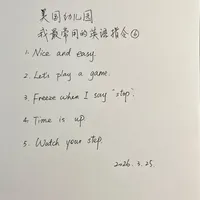 美国幼儿园
我最常用的英语指令⑥
1. Nice and easy.
2. Let's play a game.
3. Freeze when I say "stop".
4. Time is up.
5. Watch your step.
2026.3.25.